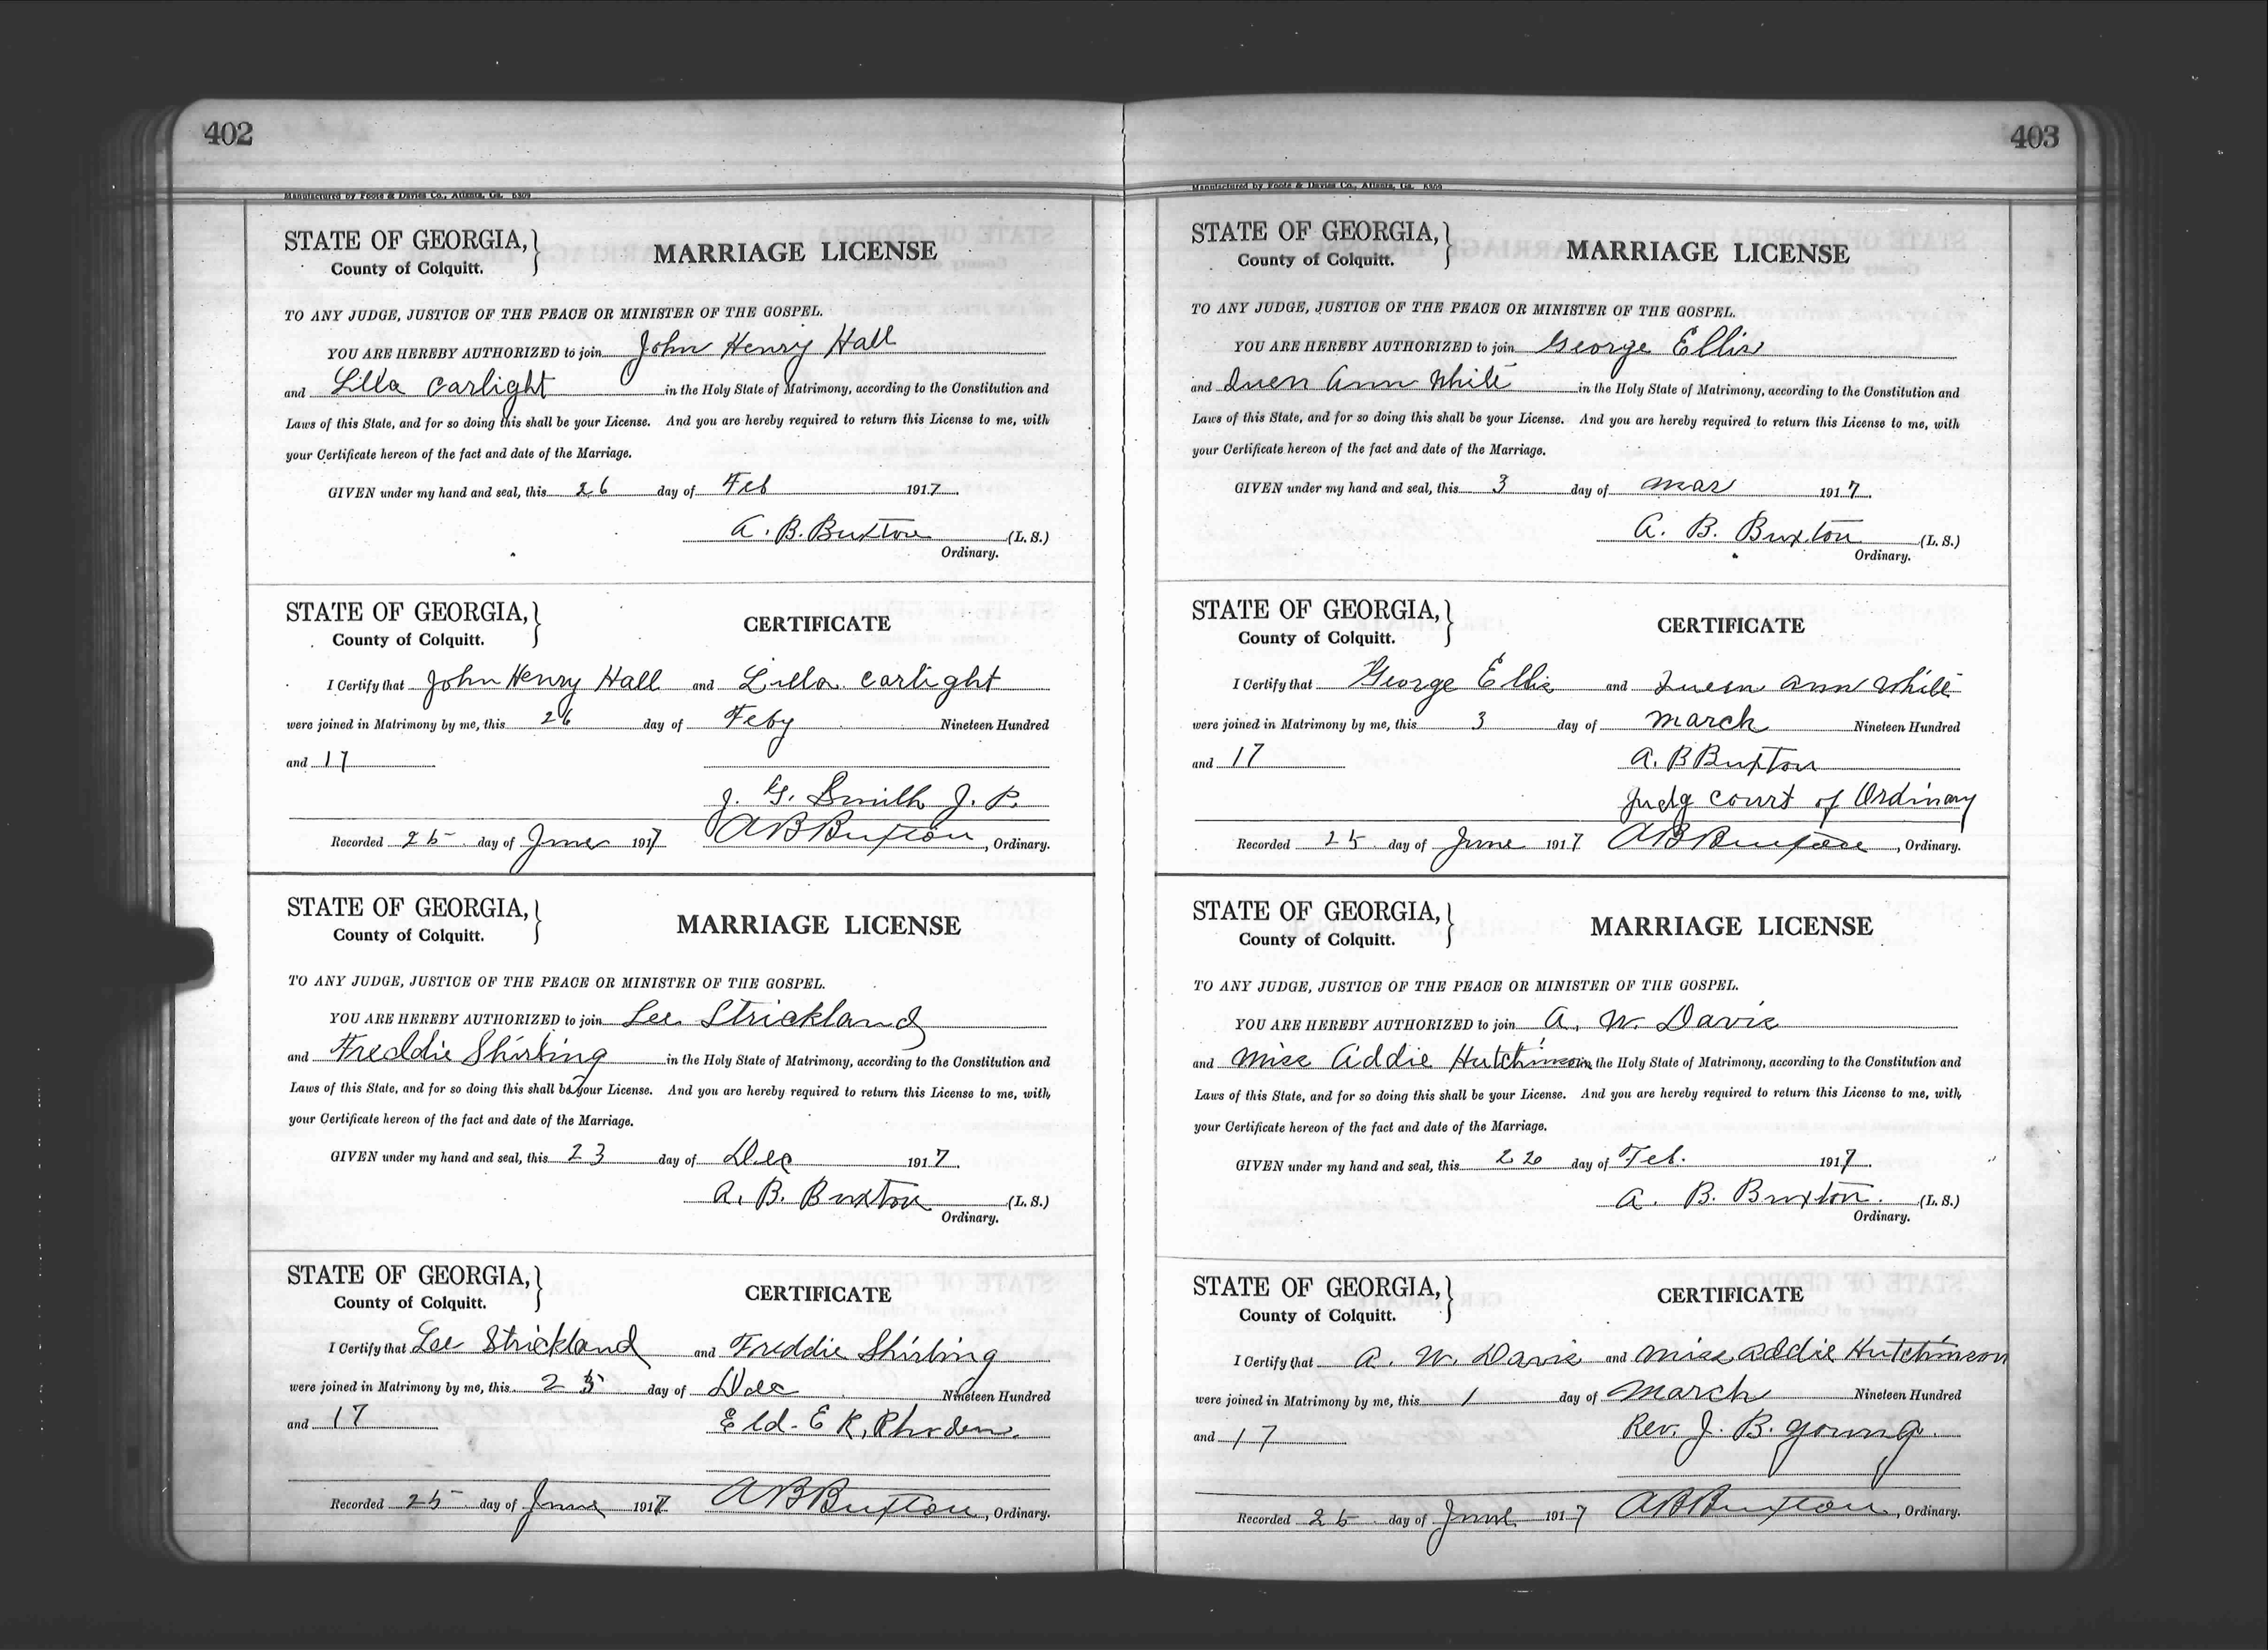 402
Manufactured by Foote & Davies Co., Atlanta, Ga. 6309
STATE OF GEORGIA,
County of Colquitt.
MARRIAGE LICENSE
TO ANY JUDGE, JUSTICE OF THE PEACE OR MINISTER OF THE GOSPEL.
YOU ARE HEREBY AUTHORIZED to join John Henry Hall
and Lilla Carlight in the Holy State of Matrimony, according to the Constitution and
Laws of this State, and for so doing this shall be your License. And you are hereby required to return this License to me, with
your Certificate hereon of the fact and date of the Marriage.
GIVEN under my hand and seal, this 26 day of Feb 1917.
A. B. Buxton (L. S.)
Ordinary.
STATE OF GEORGIA,
County of Colquitt.
CERTIFICATE
I Certify that John Henry Hall and Lilla Carlight
were joined in Matrimony by me, this 26 day of Feby Nineteen Hundred
and 17
J. G. Smith J. P.
Recorded 25 day of June 1917 A B Buxton, Ordinary.
STATE OF GEORGIA,
County of Colquitt.
MARRIAGE LICENSE
TO ANY JUDGE, JUSTICE OF THE PEACE OR MINISTER OF THE GOSPEL.
YOU ARE HEREBY AUTHORIZED to join Lee Strickland
and Freddie Shirling in the Holy State of Matrimony, according to the Constitution and
Laws of this State, and for so doing this shall be your License. And you are hereby required to return this License to me, with
your Certificate hereon of the fact and date of the Marriage.
GIVEN under my hand and seal, this 23 day of Dec 1917.
A. B. Buxton (L. S.)
Ordinary.
STATE OF GEORGIA,
County of Colquitt.
CERTIFICATE
I Certify that Lee Strickland and Freddie Shirling
were joined in Matrimony by me, this day of Dec Nineteen Hundred
and 17
Eld. E R. Rhoden.
Recorded 25 day of June 1917 A B Buxton, Ordinary.
403
Manufactured by Foote & Davies Co., Atlanta, Ga. 6309
STATE OF GEORGIA,
County of Colquitt.
MARRIAGE LICENSE
TO ANY JUDGE, JUSTICE OF THE PEACE OR MINISTER OF THE GOSPEL.
YOU ARE HEREBY AUTHORIZED to join George Ellis
and Queen Ann White in the Holy State of Matrimony, according to the Constitution and
Laws of this State, and for so doing this shall be your License. And you are hereby required to return this License to me, with
your Certificate hereon of the fact and date of the Marriage.
GIVEN under my hand and seal, this 3 day of Mar 1917.
A. B. Buxton (L. S.)
Ordinary.
STATE OF GEORGIA,
County of Colquitt.
CERTIFICATE
I Certify that George Ellis and Queen Ann White
were joined in Matrimony by me, this 3 day of March Nineteen Hundred
and 17
A. B Buxton
Judg Court of Ordinary
Recorded 25 day of June 1917 A B Buxton, Ordinary.
STATE OF GEORGIA,
County of Colquitt.
MARRIAGE LICENSE
TO ANY JUDGE, JUSTICE OF THE PEACE OR MINISTER OF THE GOSPEL.
YOU ARE HEREBY AUTHORIZED to join A. W. Davis
and Miss Addie Hutchinson in the Holy State of Matrimony, according to the Constitution and
Laws of this State, and for so doing this shall be your License. And you are hereby required to return this License to me, with
your Certificate hereon of the fact and date of the Marriage.
GIVEN under my hand and seal, this day of Feb. 1917.
A. B. Buxton. (L. S.)
Ordinary.
STATE OF GEORGIA,
County of Colquitt.
CERTIFICATE
I Certify that A. W. Davis and Miss Addie Hutchinson
were joined in Matrimony by me, this 1 day of March Nineteen Hundred
and 17
Rev. J. B. Young.
Recorded 25 day of June 1917 A B Buxton, Ordinary.